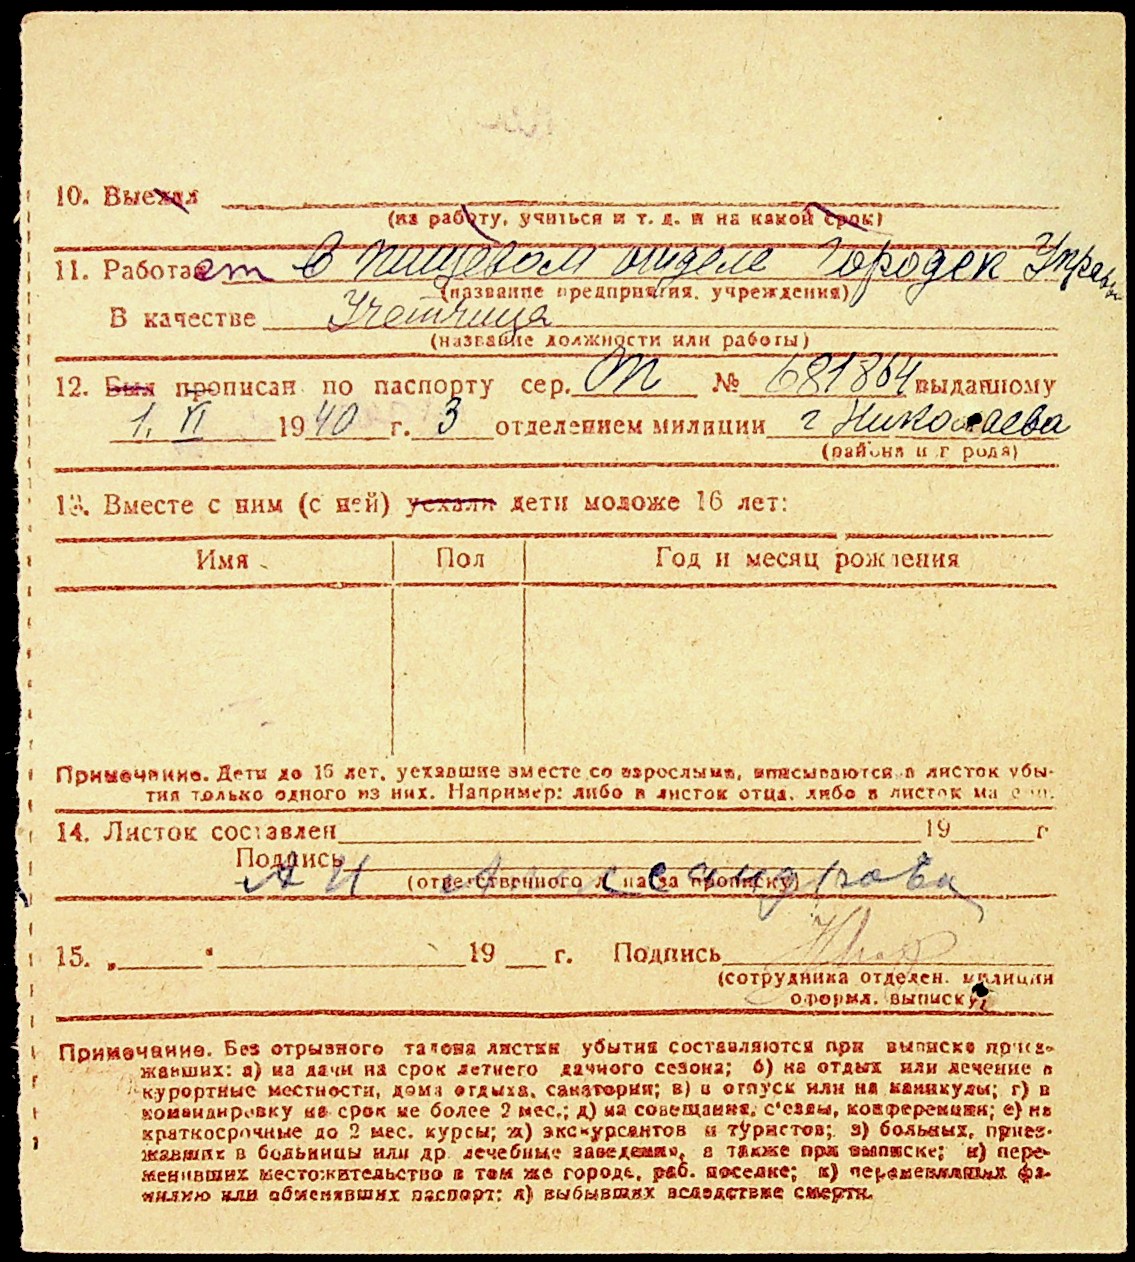 10. Выехал
(на работу, учиться и т. д. и на какой срок)
11. Работает В пищевом отделе Городск Управы
(название предприятия, учреждения)
В качестве Учетчица
(название должности или работы)
12. Был прописан по паспорту сер. ТТ № 681864 выданному
1. VI 1940 г. 3 отделением милиции г Николаева
(района и г рода)
13. Вместе с ним (с ней) уехали дети моложе 16 лет:
Имя Пол Год и месяц рождения
Примечание. Дети до 16 лет, уехавшие вместе со взрослыми, вписываются в листок убы-
тия только одного из них. Например: либо в листок отца, либо в листок ма
14. Листок составлен 19 г
Подпись А И Александрова
(ответственного лица за прописку)
15. „ " 19 г. Подпись
(сотрудника отделен. милиции
оформл. выписку)
Примечание. Без отрывного талона листки убытия составляются при выписке приез-
жавших: а) на дачи на срок летнего дачного сезона; б) на отдых или лечение в
курортные местности, дома отдыха, санатории; в) в отпуск или на каникулы; г) в
командировку на срок не более 2 мес.; д) на совещания, с'езды, конференции; е) на
краткосрочные до 2 мес. курсы; ж) экскурсантов и туристов; з) больных, приез-
жавших в больницы или др. лечебные заведения, а также при выписке; и) пере-
менивших местожительство в том же городе, раб. поселке; к) переменивших фа-
милию или обменявших паспорт; л) выбывших вследствие смерти.